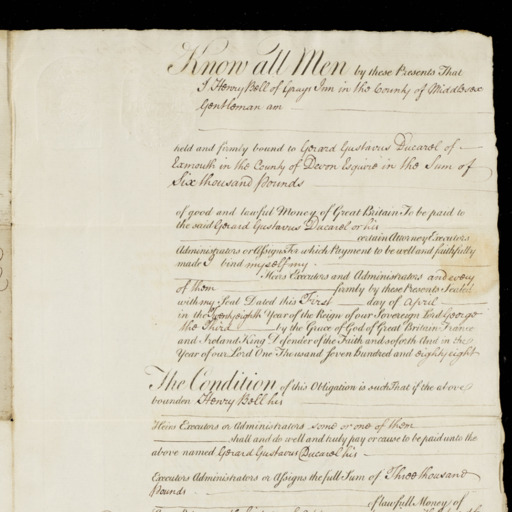 Know all Men by these Presents That
I Henry Bell of Grays Inn in the County of Middlesex
Gentleman am
held and firmly bound to Gerard Gustavus Ducarel of
Exmouth in the County of Devon Esquire in the Sum of
Six thousand Pounds
of good and lawful Money of Great Britain To be paid to
the said Gerard Gustavus Ducarel or his
certain Attorney Executors
Administrators or Assigns For which Payment to be well and faithfully
made I bind myself my
Heirs Executors and Administrators and every
of them firmly by these Presents Sealed
with my Seal Dated this First day of April
in the Twenty eighth Year of the Reign of our Sovereign Lord George
the Third by the Grace of God of Great Britain France
and Ireland King Defender of the Faith and so forth And in the
Year of our Lord One Thousand Seven Hundred and eighty eight
The Condition of this Obligation is such That if the above
bounden Henry Bell his
Heirs Executors or Administrators some or one of them
shall and do well and truly pay or cause to be paid unto the
above named Gerard Gustavus Ducarel his
Executors Administrators or Assigns the full Sum of Three thousand
Pounds
of lawfull Money of